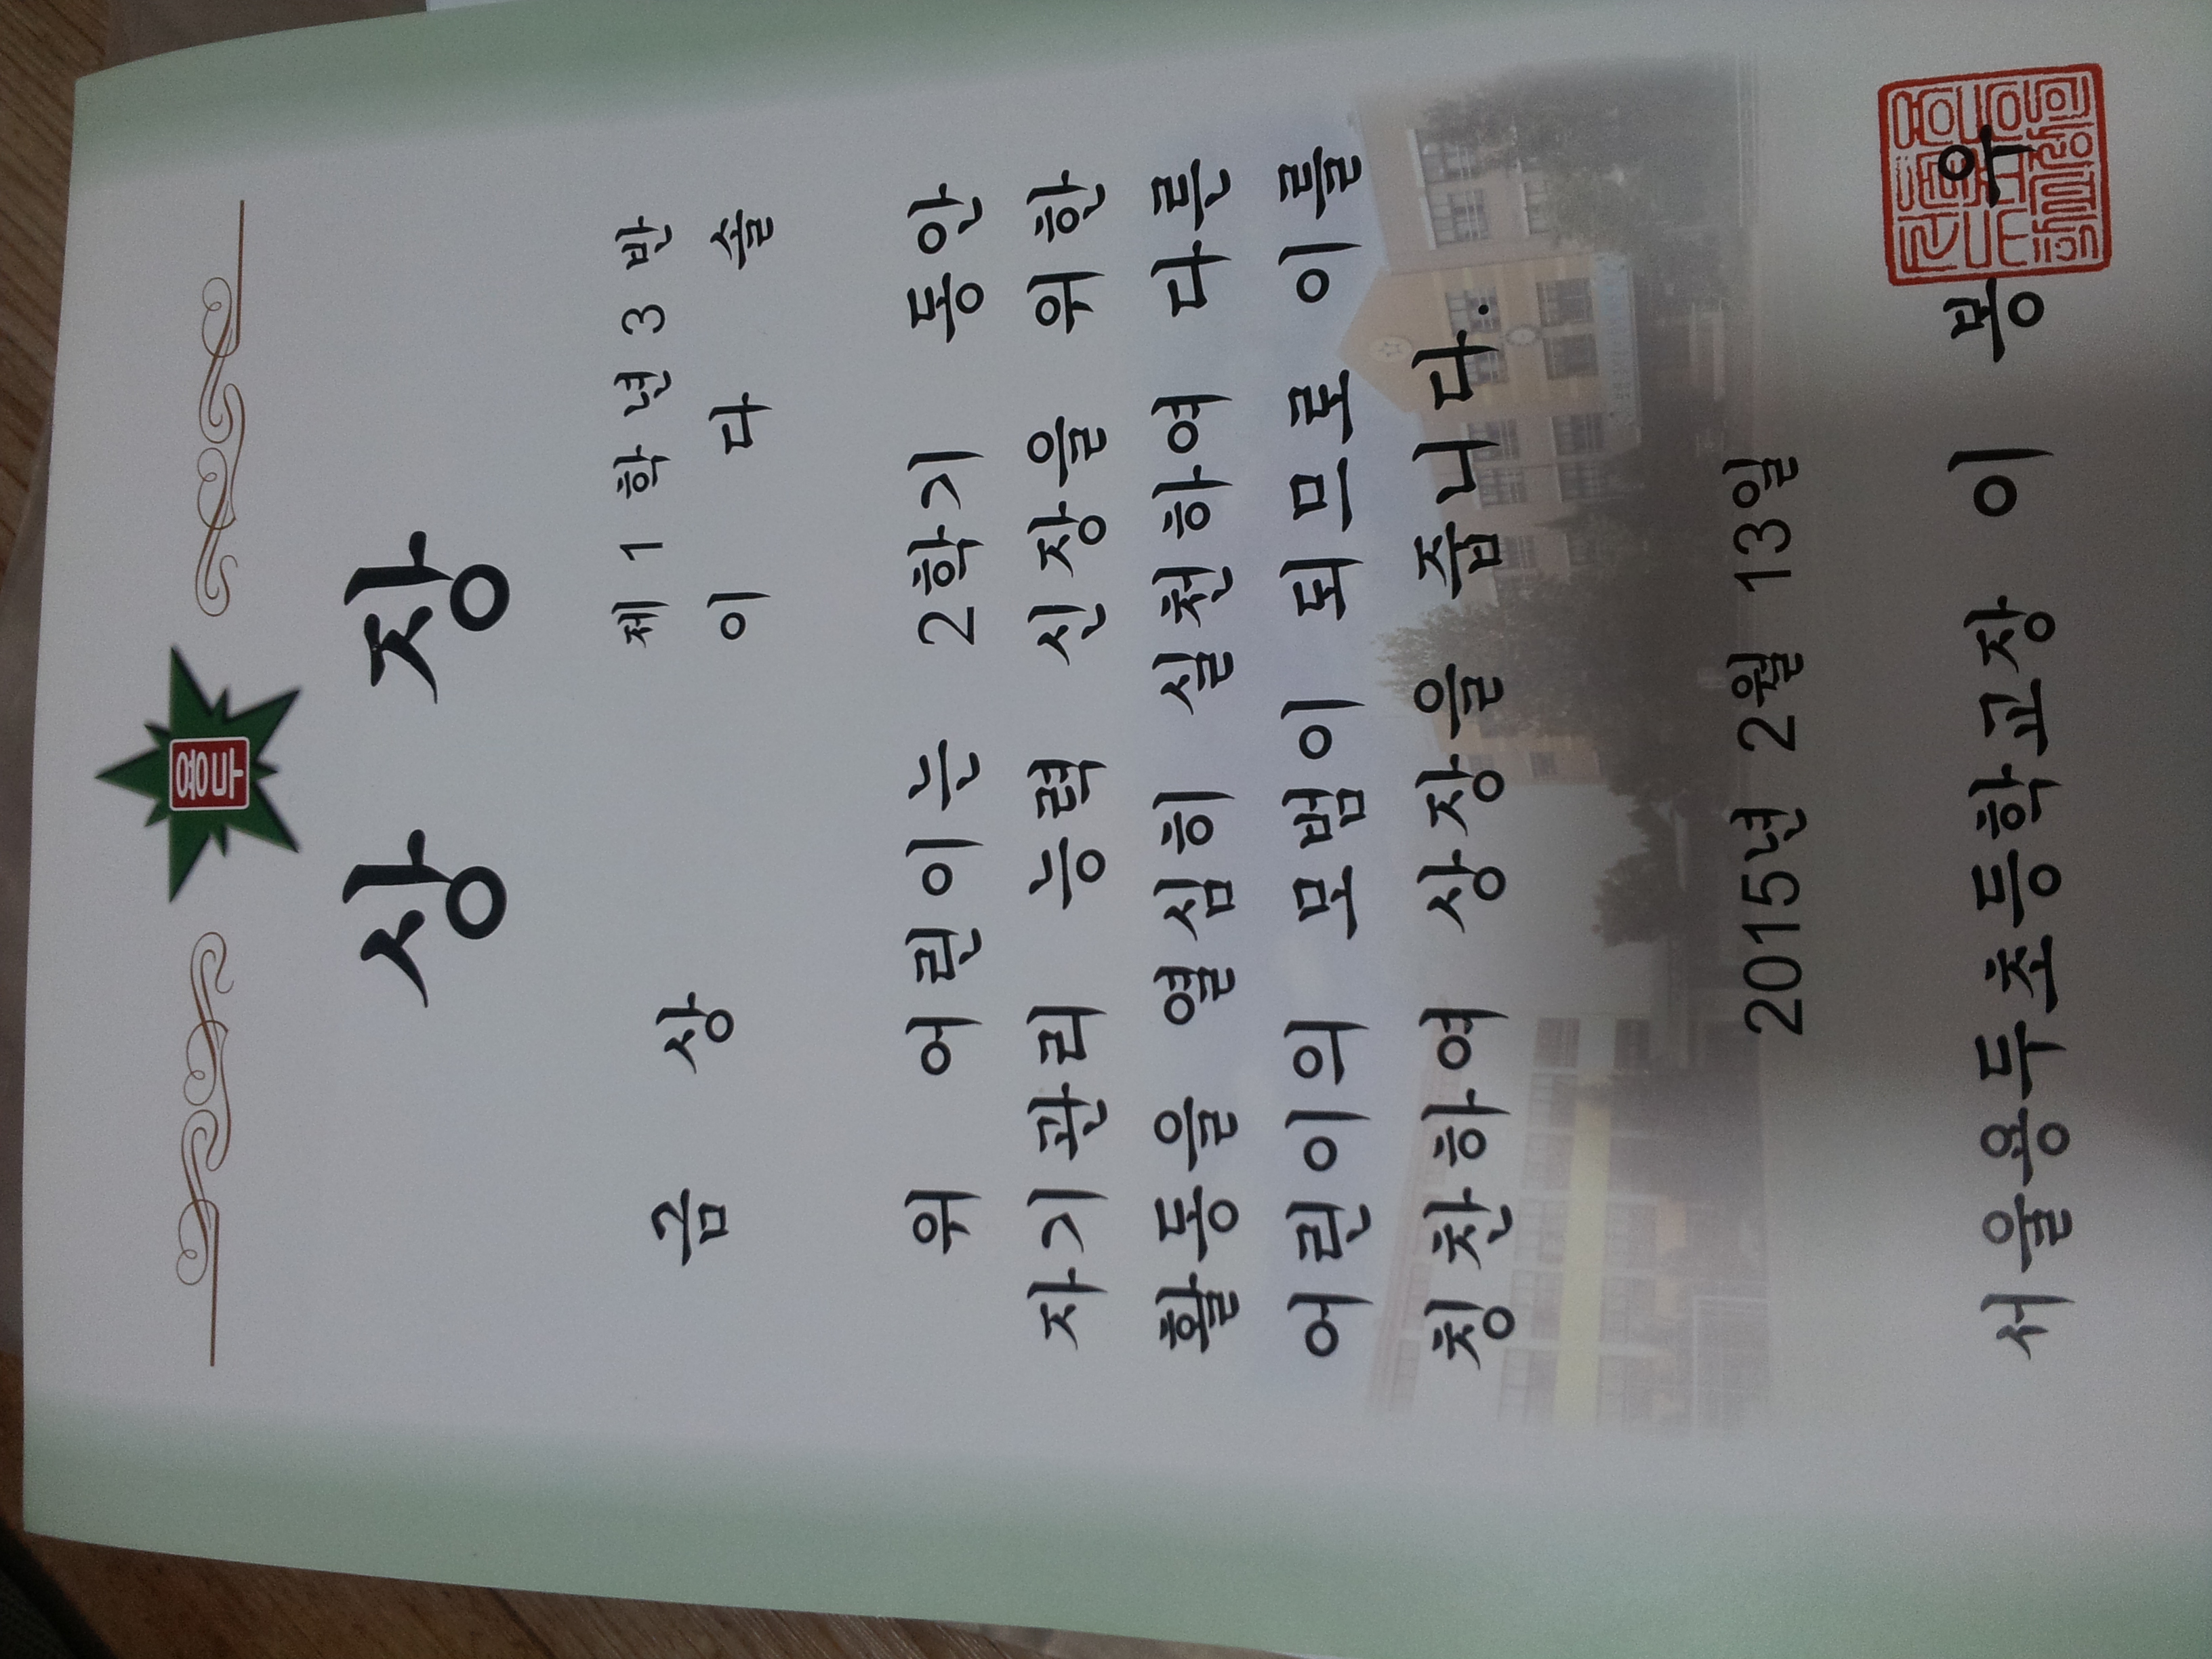 용두
상 장
금 상
제 1 학 년 3 반
이 다 솔
위 어린이는 2학기 동안
자기관리 능력 신장을 위한
활동을 열심히 실천하여 다른
어린이의 모범이 되므로 이를
칭찬하여 상장을 줍니다.
2015년 2월 13일
서울용두초등학교장 이 봉 우